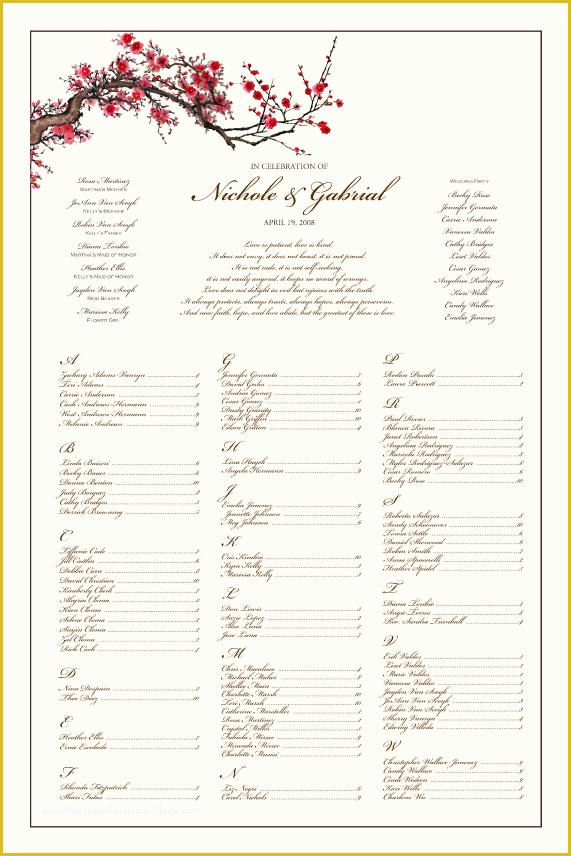 IN CELEBRATION OF
Nichole & Gabrial
APRIL 19, 2008
Rosa Martinez
MARTINA'S MOTHER
JoAnn Van Seogh
KELLY'S MOTHER
Robin Van Seogh
KELLY'S FATHER
Diana Toribio
MARTINA'S MAID OF HONOR
Heather Ellis
KELLY'S MAID OF HONOR
Jayden Van Seogh
RING BEARER
Marissa Kelly
FLOWER GIRL
Love is patient, love is kind.
It does not envy, it does not boast, it is not proud.
It is not rude, it is not self-seeking,
it is not easily angered, it keeps no record of wrongs.
Love does not delight in evil but rejoices with the truth.
It always protects, always trusts, always hopes, always perseveres.
And now faith, hope, and love abide, but the greatest of these is love.
WEDDING PARTY
Becky Rose
Jennifer Germata
Carrie Anderson
Vanessa Valdes
Cathy Bridges
Liset Valdes
Cesar Gomez
Angelina Rodriguez
Kari Wells
Candy Wallace
Emelia Jimenez
A
Zachary Adams-Vanryn 4
Teri Adams 4
Carrie Anderson 7
Cash Andrews-Hermann 9
West Andrews-Hermann 9
Melanie Andrews
B
Linda Baiseri 6
Becky Bauer 6
Donna Benton 10
Judy Borquez 3
Cathy Bridges 5
Derrick Browning 5
C
Tiffanie Cade 7
Jill Caitlin 6
Debbie Carn 3
David Christian 10
Kimberly Clark 7
Alegria Cloma 2
Kian Cloma 2
Selene Cloma 2
Saryin Cloma 2
Zel Cloma 2
Rich Cook 1
D
Nina Despain 3
Theo Diaz 10
E
Heather Ellis 7
Ernie Escobedo 3
F
Rhonda Fitzpatrick 7
Shari Futas 4
G
Jennifer Germata 7
David Godes 6
Andria Gomez 5
Cesar Gomez 5
Dusty Granity 10
Mark Griffin 10
Eileen Grattan 4
H
Lisa Haydt 1
Angela Hermann 9
J
Emelia Jimenez 9
Jeanette Johnson 7
Meg Johnson 6
K
Cris Kindra 10
Ryan Kelly 3
Marissa Kelly 3
L
Don Lewis 3
Suzie Lopez 2
Alba Luna 7
Jose Luna 7
M
Chris Macaluso 4
Michael Maher 8
Shelley Main 3
Charlotte Marsh 10
Teri Marsh 10
Catherine Marsteller 1
Rosa Martinez 1
Crystal Miller 5
Fabiola Mirsee 9
Miranda Mirsee 1
Charlotte Massisi 2
N
Liz Negri 6
Carol Nichols 9
P
Rodica Pasula 5
Laura Prescott 2
R
Paul Revier 3
Blanca Rivera 5
Janet Robertson 4
Angelina Rodriguez 5
Maricela Rodriguez 8
Myles Rodriguez-Salazar 8
Cesar Romero 5
Becky Rose 10
S
Roberto Salazar 8
Sandy Schoonover 10
Teresa Settle 6
Daniel Sherwood 8
Robin Smith 7
Anna Spaccerelli 2
Heather Speidel
T
Diana Toribio 1
Angie Torres 1
Rev. Sandra Turnbull 4
V
Erik Valdes 1
Liset Valdes 1
Mario Valdes 1
Vanessa Valdes 1
Jayden Van Seogh 3
JoAnn Van Seogh 3
Robin Van Seogh 3
Sherry Vanryn 4
Edwing Villeda 5
W
Christopher Wallace-Jimenez 9
Candy Wallace 9
Cinde Wideen 9
Kari Wells 8
Charlene Wu 8